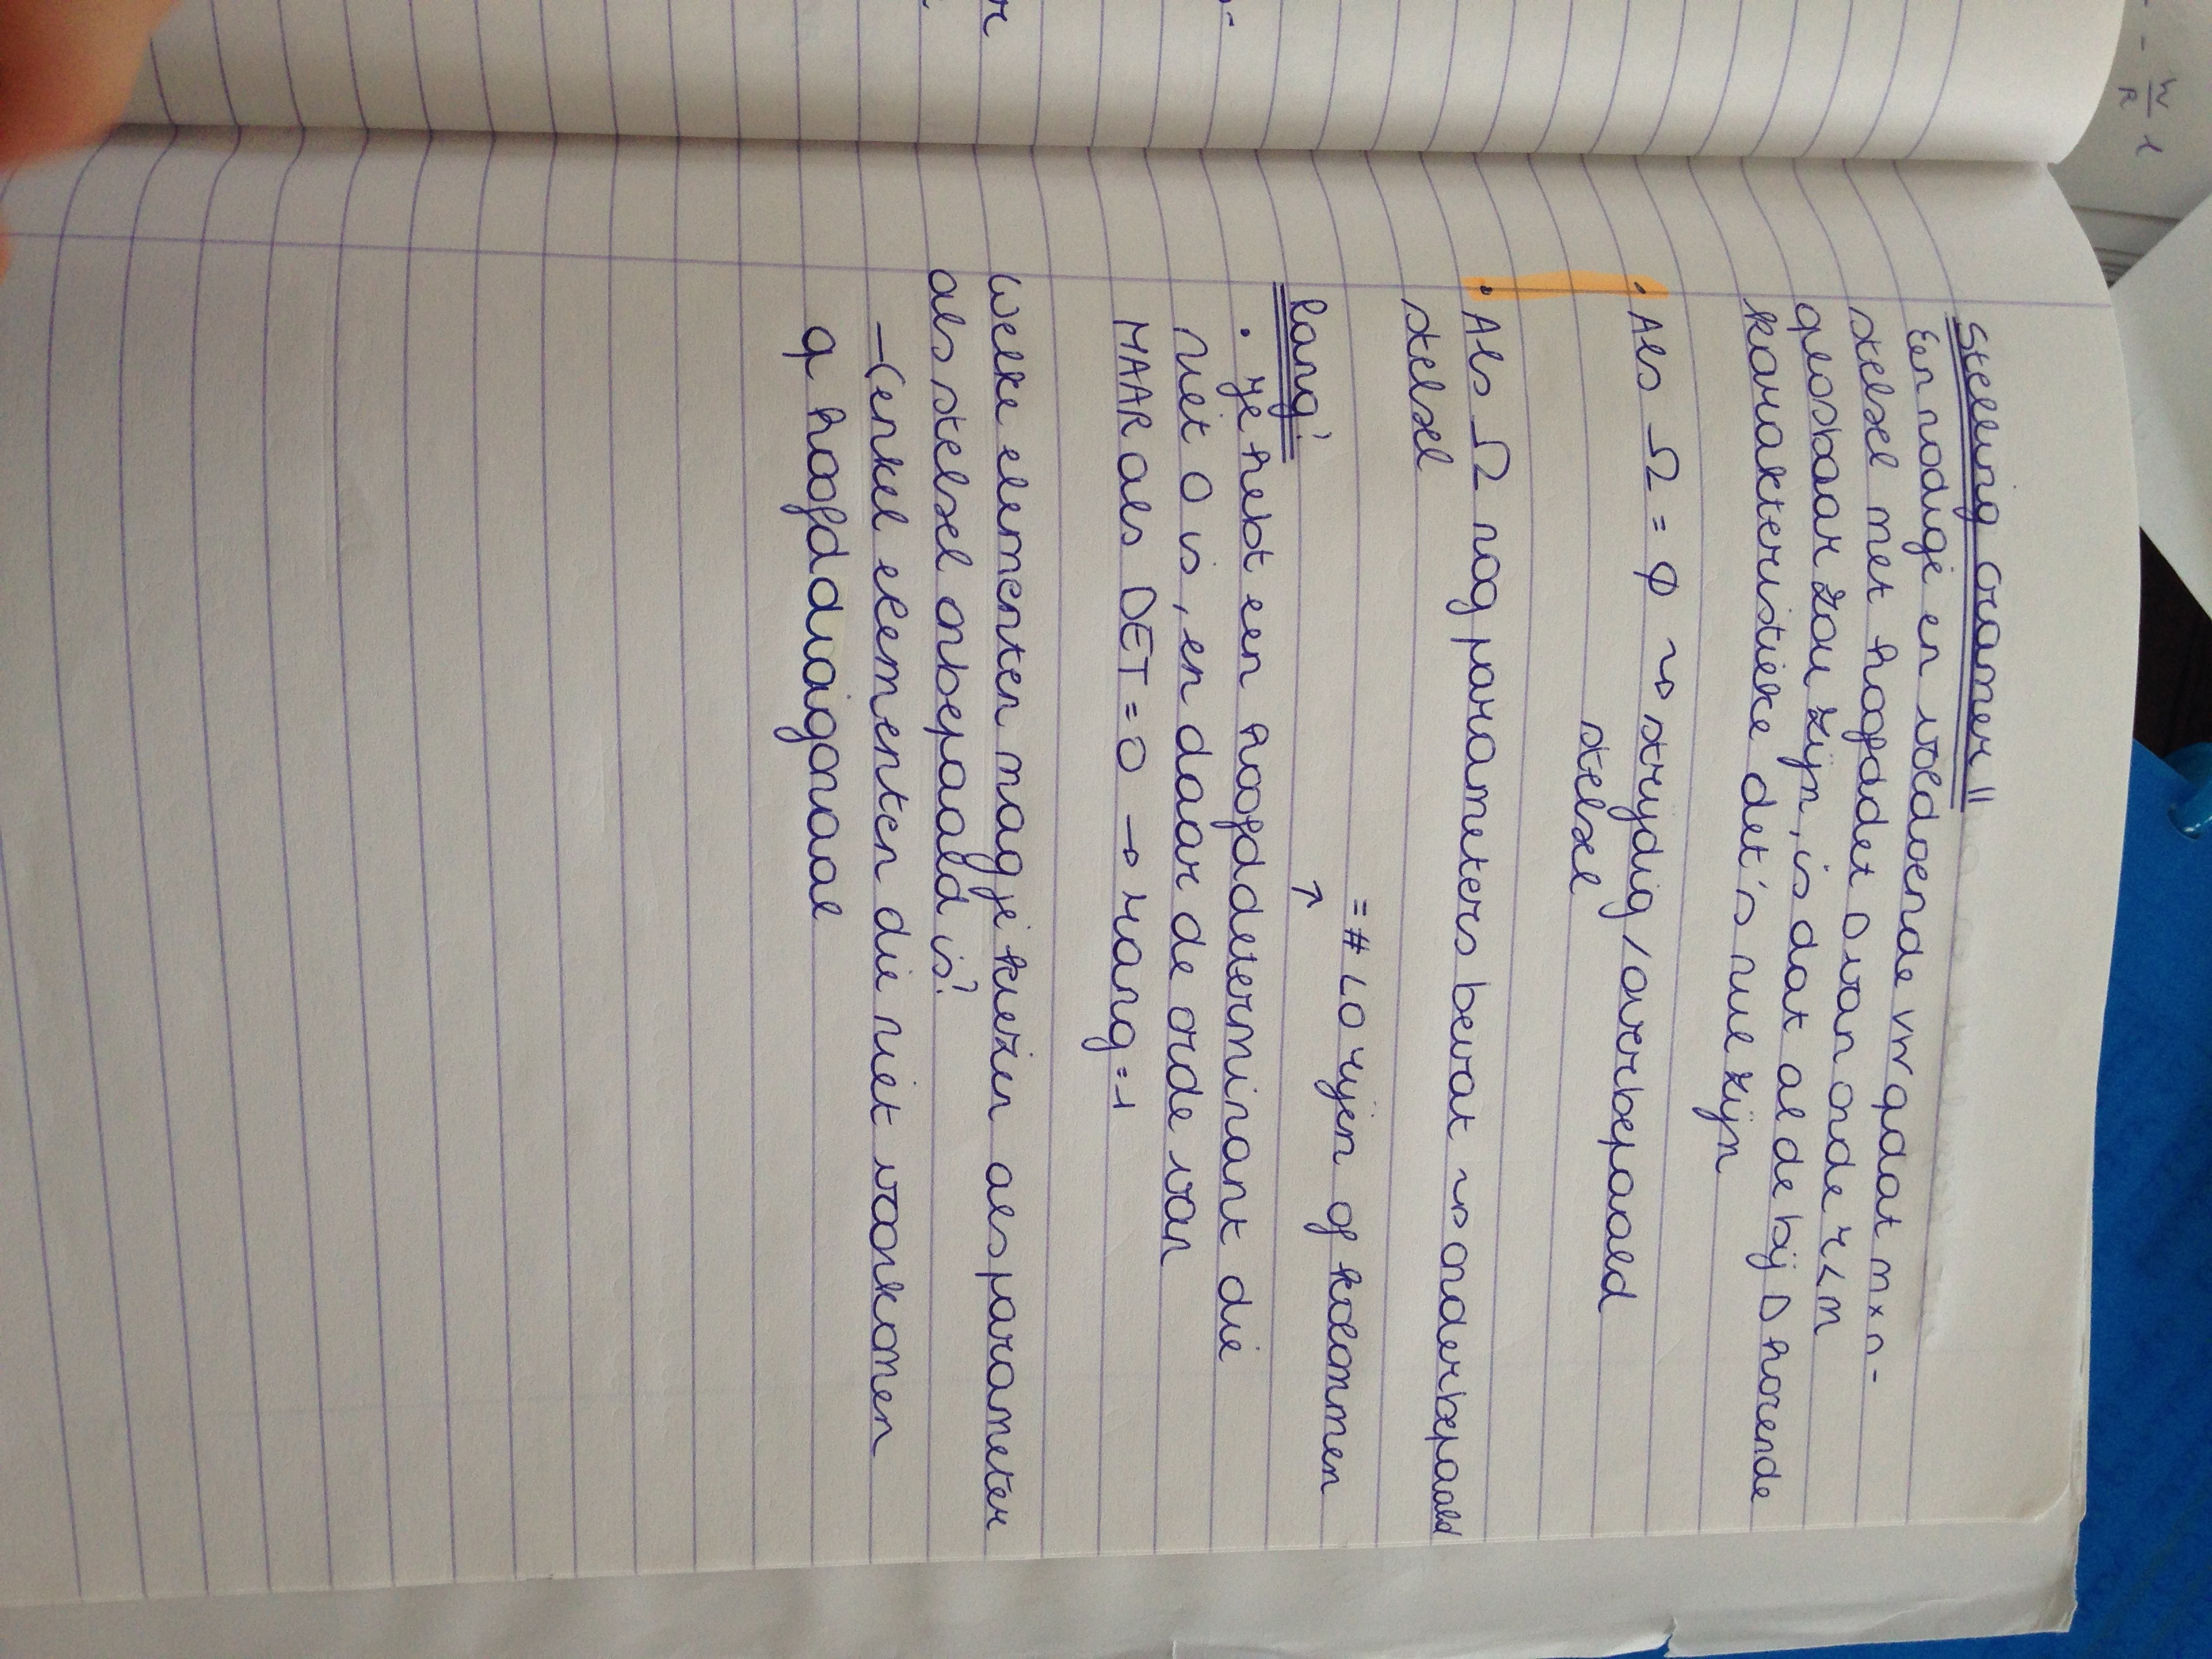 Stelling cramer II
Een nodige en voldoende vw qdat m×n-
stelsel met hoofddet D van orde r<m
oplosbaar zou zijn, is dat al de bij D horende
karakteristieke det's nul zijn
• Als Ω = φ ~> strijdig / overbepaald
stelsel
• Als Ω nog parameters bevat ~> onderbepaald
stelsel
= # LO rijen of kolommen
↗
Rang?
• Je hebt een hoofddeterminant die
niet 0 is, en daar de orde van
MAAR als DET = 0 → rang = 1
Welke elementen mag je kiezen als parameter
als stelsel onbepaald is?
→ (enkel elementen die niet voorkomen
q hoofddiagonaal